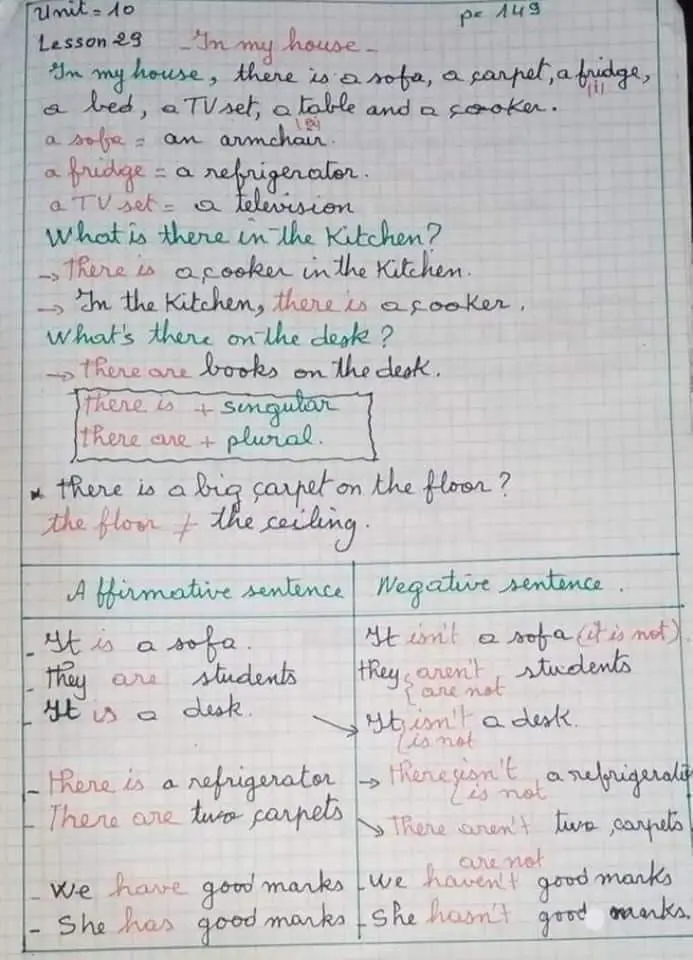 Unit = 10
p= 149
Lesson 29 - In my house -
In my house, there is a sofa, a carpet, a fridge,
(i)
a bed, a TV set, a table and a cooker.
a sofa = an armchair.
a fridge = a refrigerator.
a TV set = a television
What is there in the Kitchen?
→ There is a cooker in the Kitchen.
→ In the Kitchen, there is a cooker.
What's there on the desk?
→ there are books on the desk.
there is + singular
there are + plural.
* there is a big carpet on the floor?
the floor ≠ the ceiling.
Affirmative sentence
Negative sentence.
- It is a sofa.
It isn't a sofa (it is not)
- they are students
they aren't students
are not
- It is a desk.
It isn't a desk.
is not
- there is a refrigerator
→ there isn't a refrigerator
is not
- There are two carpets
There aren't two carpets
are not
- We have good marks
- We haven't good marks
- She has good marks
- She hasn't good marks.